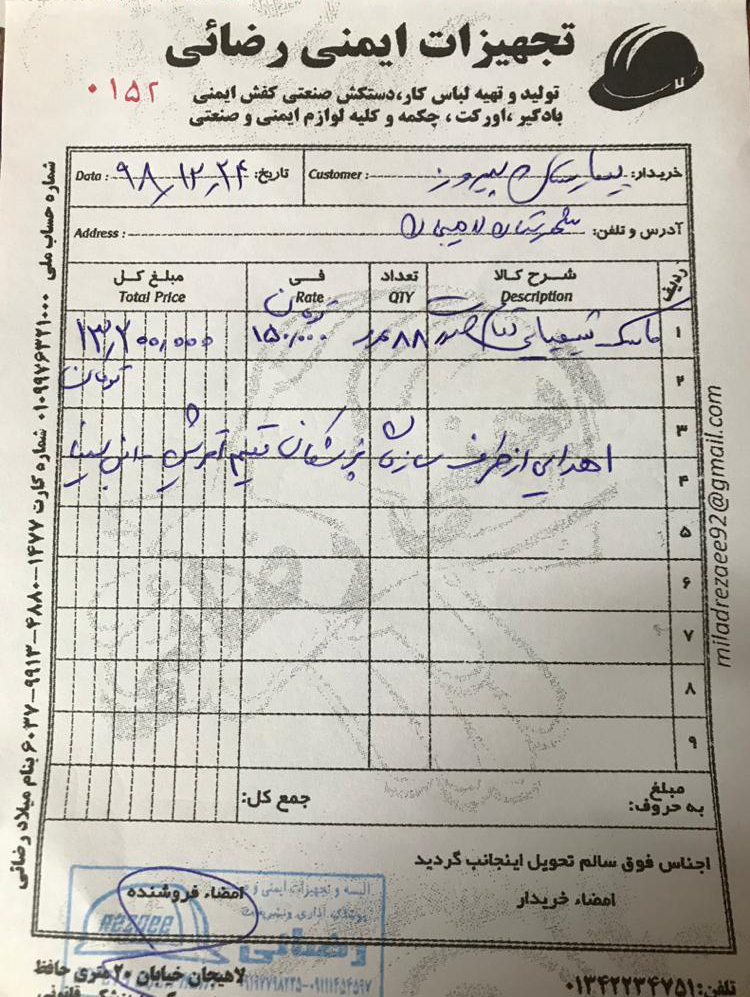 تجهیزات ایمنی رضائی
۰۱۵۲
تولید و تهیه لباس کار،دستکش صنعتی کفش ایمنی
بادگیر ،اورکت ، چکمه و کلیه لوازم ایمنی و صنعتی
خریدار: بیمارستان پیروز Customer :
تاریخ: ۹۸/۱۲/۲۴ Data :
آدرس و تلفن: شهرستان لاهیجان Address :
ردیف
شرح کالا Description
تعداد QTY
فی Rate تومان
مبلغ کل Total Price
۱ ماسک شیمیایی تمام صورت ۸۸ عدد ۱۵۰,۰۰۰ ۱۳,۲۰۰,۰۰۰
۲ تومان
۳
اهدایی از طرف سازمان پزشکان تیم
۴
۵
۶
۷
۸
۹
مبلغ به حروف:
جمع کل:
اجناس فوق سالم تحویل اینجانب گردید
امضاء خریدار
امضاء فروشنده
البسه و تجهیزات ایمنی و
رضائی
REZAEE
لاهیجان خیابان ۲۰ متری حافظ
تلفن: ۰۱۳۴۲۲۳۴۷۵۱
شماره حساب ملی ۰۱۰۹۹۷۶۳۷۱۰۰۰ شماره کارت ۱۴۷۷-۴۸۸۰-۹۹۱۳-۶۰۳۷ بنام میلاد رضائی
miladrezaee92@gmail.com